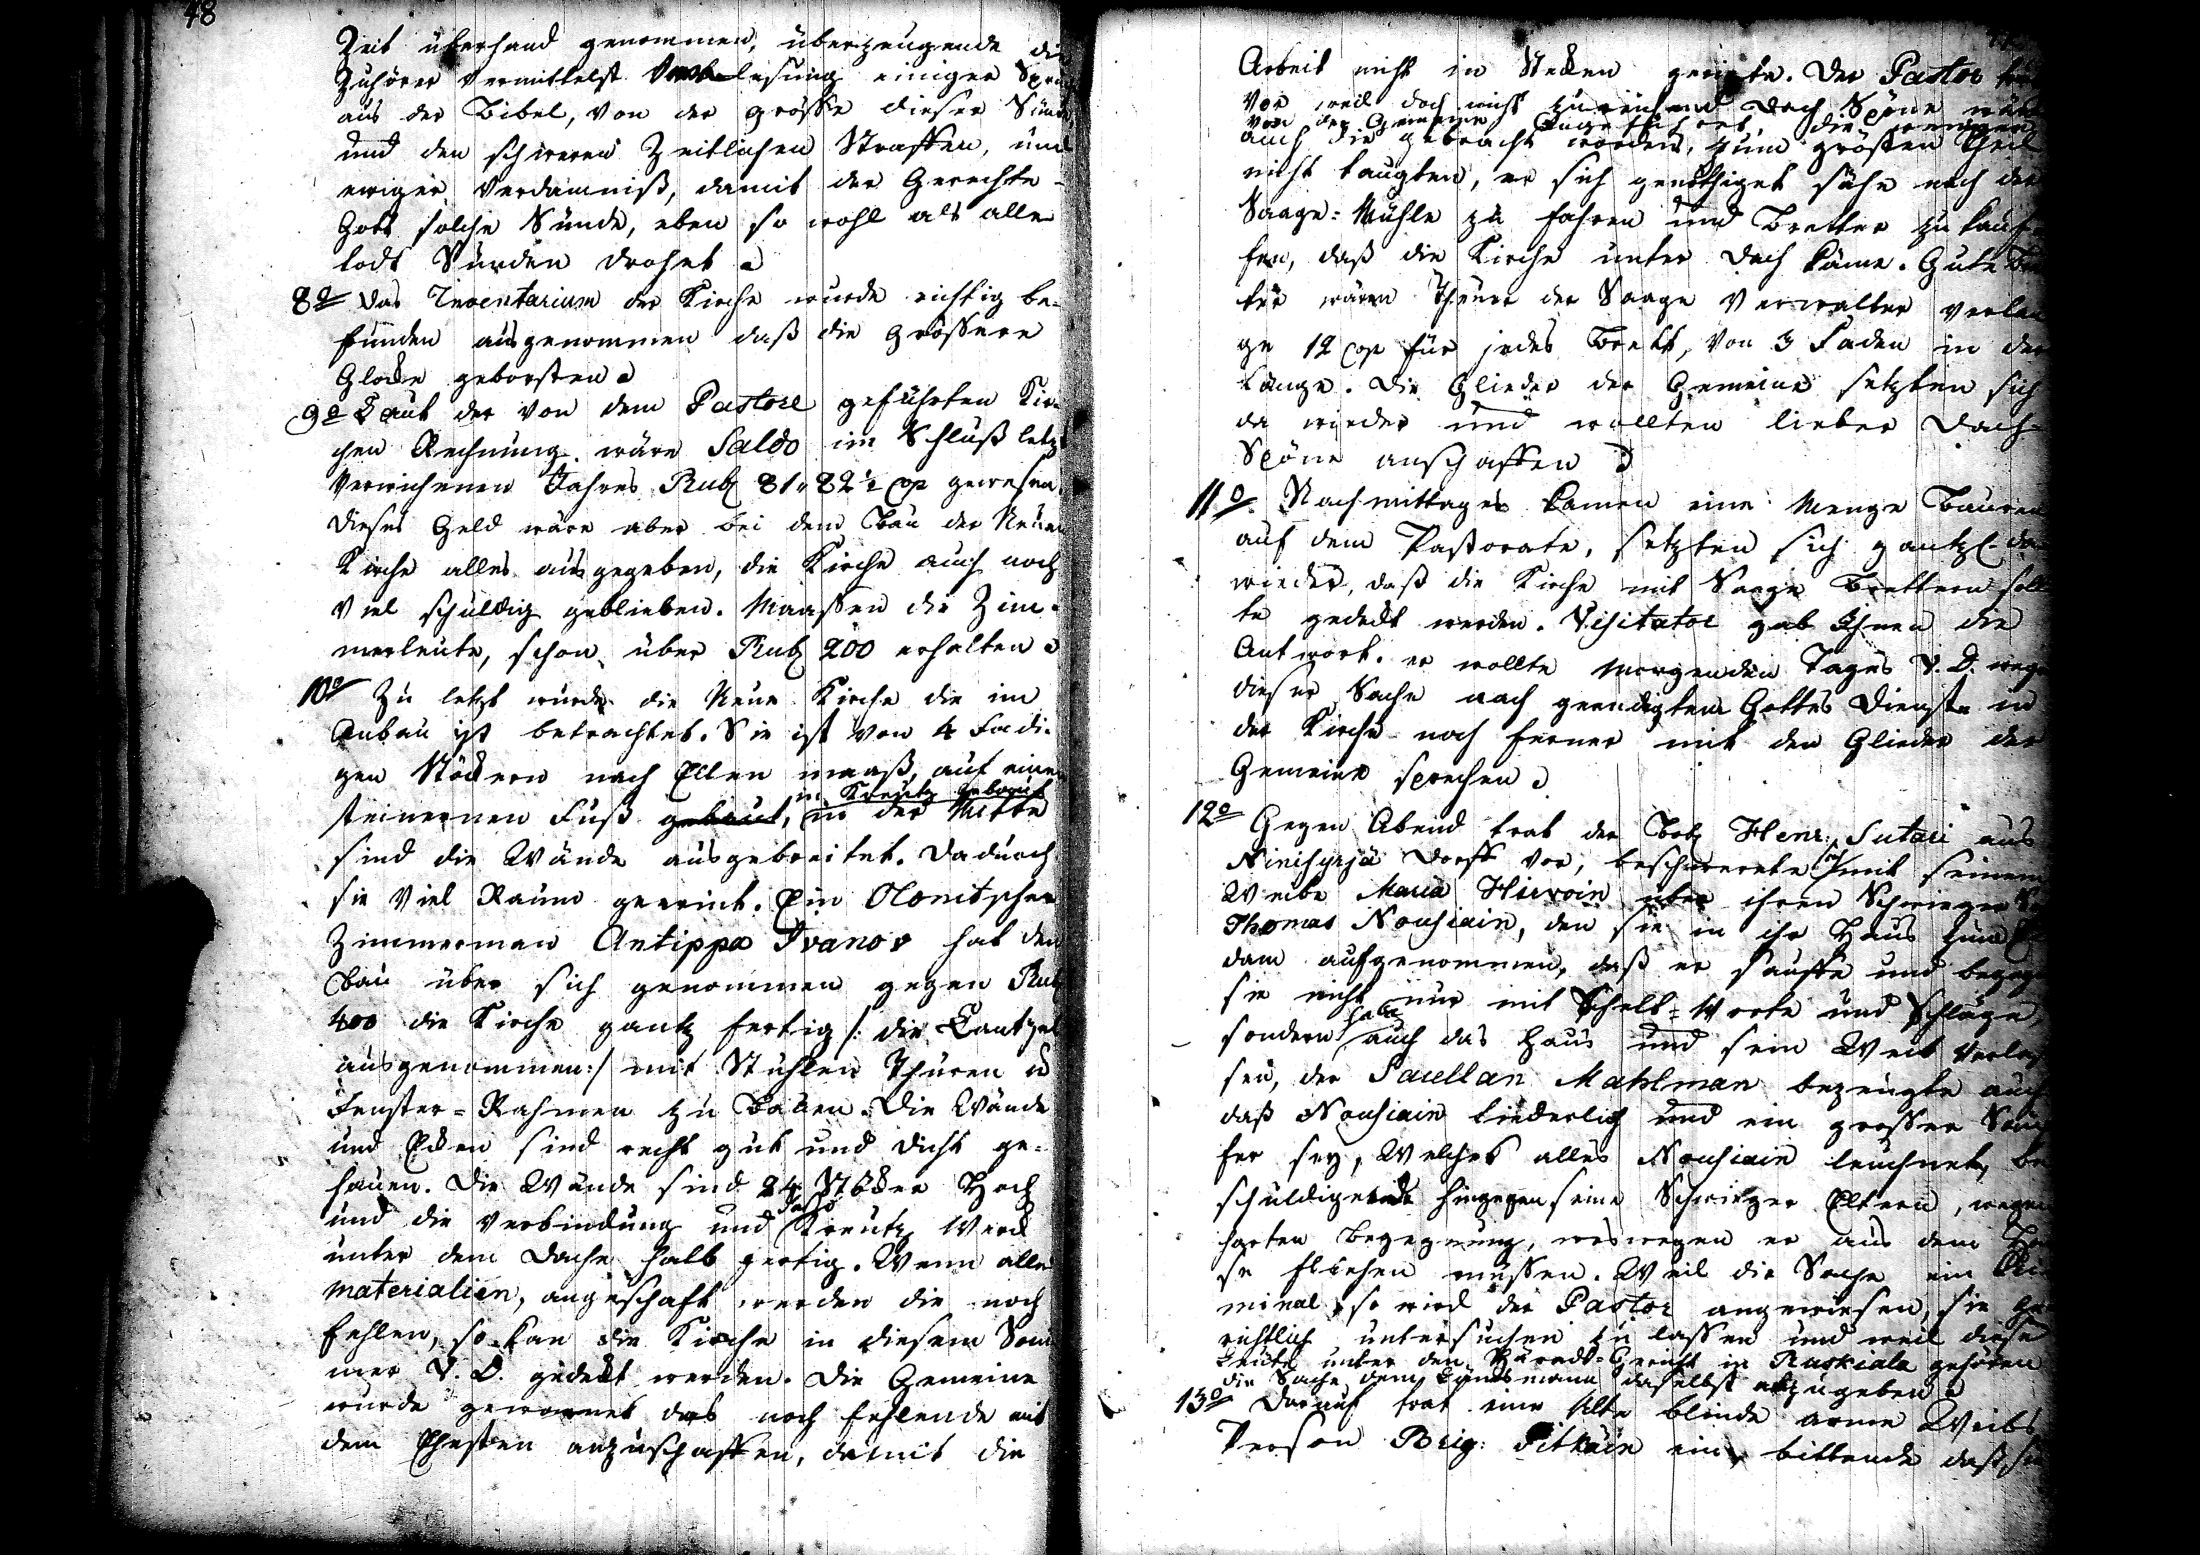 48
Zeit überhand genommen, überzeugende die
Zuhörer vermittelst Vorlesung einiger Sprüche
aus der Bibel, von der grösse dieser Sünde
und den schweren Zeitlichen Straffen, und
ewiger Verdamniß, damit der Gerechte
Gott solche Sünde, eben so wohl als alle
todt Sünden drohet
8o Das Inventarium der Kirche wurde richtig be-
funden ausgenommen daß die Grössere
Glocke geborsten
9o Laut der von dem Pastore geführten Kir-
chen Rechnung wäre Saldo im Schluß letzt
Verwichenen Jahres Rub 81 " 82½ cop gewesen.
Dieses Geld wäre aber bei dem Bau der Neuen
Kirche alles ausgegeben, die Kirche auch noch
viel schuldig geblieben. Maassen die Zim-
merleute, schon über Rub 200 erhalten
10o Zu letzt wurde die Neue Kirche die im
Anbau ist betrachtet. Sie ist von 4 Fadi-
gen Stöckern nach Ellen maaß, auf einen
in Kreutz gebaut
steinernen Fuß gebaut, in der Mitte
sind die Wände ausgebreitet. Dadurch
sie viel Raum gewint. Ein Olonitscher
Zimmerman Antippa Ivanov hat den
Bau über sich genommen gegen Rub
400 die Kirche gantz fertig /: die Cantzel
ausgenommen :/ mit Stühlen Thüren u
Fenster-Rahmen zu Bauen. Die Wände
und Ecken sind recht gut und dicht ge-
hauen. Die Wände sind 24 Stöcker Hoch
und die Verbindung und Kreutz Werck
unter dem Dache halb fertig. Wenn alle
materialien, angeschaft werden die noch
fehlen, so kan die Kirche in diesem Som
mer V. D. gedeckt werden. Die Gemeine
wurde gewarnet das noch fehlende mit
dem Ehesten anzuschaffen, damit die
Arbeit nicht in Stecken geriethe. Der Pastor
vor, weil doch nicht zureichend Dach Spöne
von der Gemeine die wenigen
auch die gebracht worden, zum grösten Theil
nicht taugten, er sich genöthiget sähe nach der
Saage-Mühle zu fahren und Bretter zu kauf-
fen, daß die Kirche unter Dach käme. Gute
ter wären Theuer der Saage Verwalter verlan
ge 12 cop für jedes Brett, von 3 Faden in der
Länge. Die Glieder der Gemeine setzten sich
da wieder und wollten lieber Dach-
Spöne anschaffen
11o. Nachmittages kamen eine Menge Bauren
auf dem Pastorate, setzten sich gantzl. da
wieder, daß die Kirche mit Saage Brettern soll
te gedeckt werden. Visitator gab Ihnen die
Antwort. er wollte morgenden Tages V. D. wegen
dieser Sache nach geendigtem Gottes Dienste in
der Kirche noch ferner mit den Glieder der
Gemeine sprechen
12o Gegen Abend trat der Henr: Sutari aus
Dorff vor, beschwerete sich mit seinem
Weibe Maria Hirvoin über ihren Schwieger
Thomas Nousiain, den sie in ihr Haus zum
dam aufgenommen, daß er sauffe und
sie nicht nur mit Schelt-Worte und Schläge,
sondern habe auch das Haus und sein Weib verlas
sen, der Mahlman bezeugte auch
daß Nousiain liederlich und ein grosser Säu
fer sey, Welches alles Nousiain leuchnet, be
schuldigende hingegen seine Schwieger Eltern, wegen
harten Begegnung, weswegen er aus dem
se fliehen müssen. Weil die Sache ein Cri
minal, so wird der Pastor angewiesen, sie Ge
richtlich untersuchen zu lassen und weil diese
Leute unter den Härads-Gericht in Ruskiala gehören
die Sache dem Ländsmann daselbst abzugeben
13o Darauf trat eine Alte blinde arme Weibs
Person Brig: Pitkäin ein, bittende daß sie